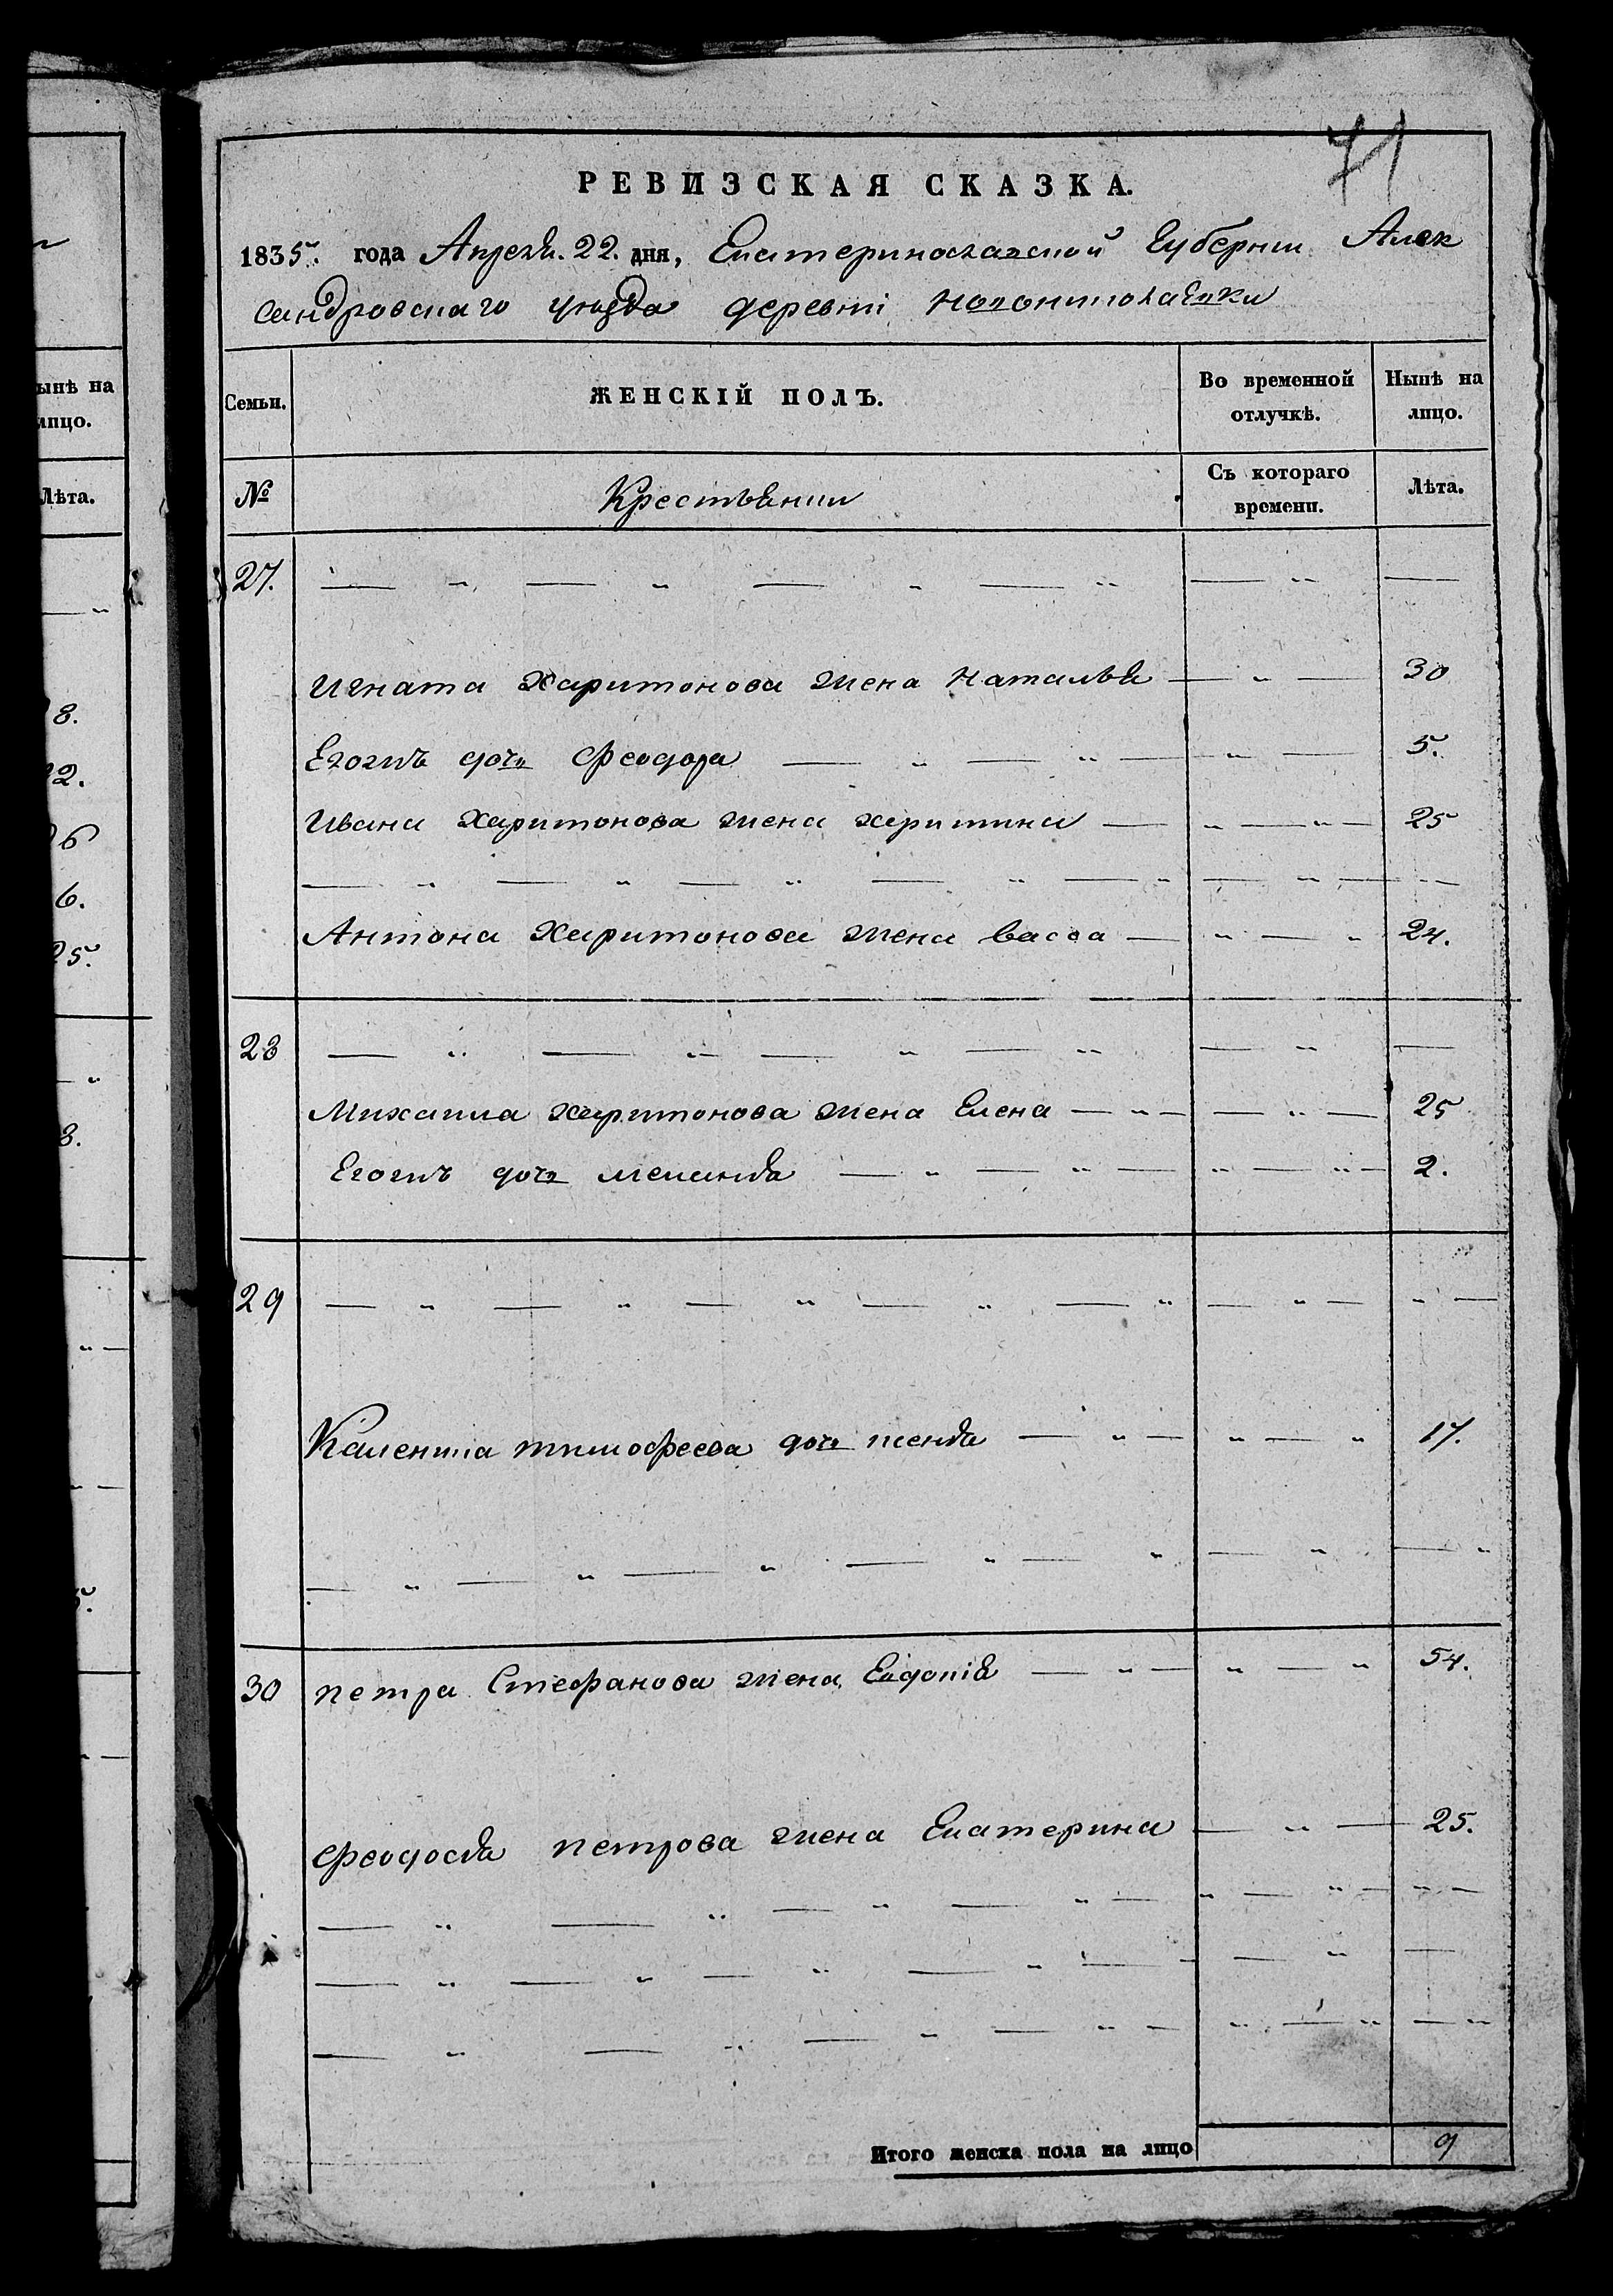 71
РЕВИЗСКАЯ СКАЗКА.
1835. года Апреля. 22. дня, Екатеринославской Губернии Алек
сандровскаго уезда деревни Новониколаевки
ынѣ на
лицо.
Лѣта.
Семьи. ЖЕНСКІЙ ПОЛЪ. Во временной отлучкѣ. Нынѣ на лицо.
№ Крестьянии Съ котораго времени. Лѣта.
27. — „ — „ — „ — „ — „ —
Игната Харитонова жена Наталья — „ — 30
Егогжъ дочь Феодора — „ — „ — „ — 5.
Ивана Харитонова жена христина — „ — „ — 25
— „ — „ — „ — „ — „ — „ — „ —
Антона Харитонова жена васса — „ — „ 24.
28 — „ — „ — „ — „ — „ —
Михаила харитонова жена Елена — „ — — „ — 25
Егогжъ дочь меланья — „ — „ — „ — „ — 2.
29 — „ — „ — „ — „ — „ — „ — „ —
Каленика тимофеева дочь ксенья — „ — „ — „ 17.
— „ — „ — „ — „ — „ — „ — „
30 петра Стефанова жена Евдокія — „ — „ — „ 54.
Феодосья петрова жена Екатерина — „ — 25.
— „ — „ — „ — „ — „ — „ — „ —
— „ — „ — „ — „ — — „ —
— „ — „ — „ — „ — „ — „ — „
Итого женска пола на лицо 9